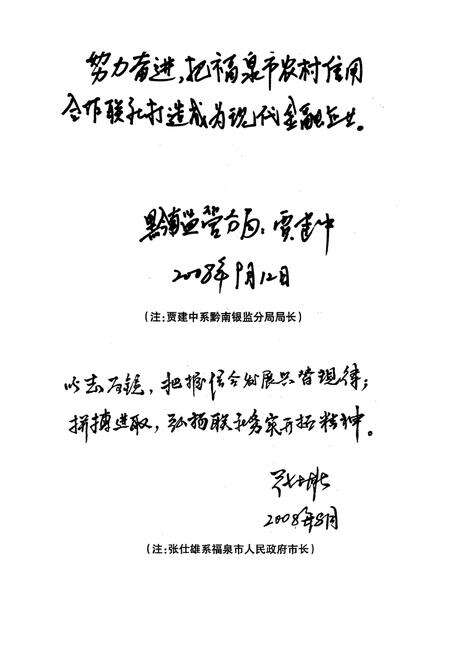 努力奋进，把福泉市农村信用
合作联社打造成为现代金融企业。
黔南监管分局：贾建中
2008年9月12日
（注：贾建中系黔南银监分局局长）
以志为镜，把握信合发展与管理规律；
拼搏进取，弘扬联社务实开拓精神。
张仕雄
2008年8月
（注：张仕雄系福泉市人民政府市长）